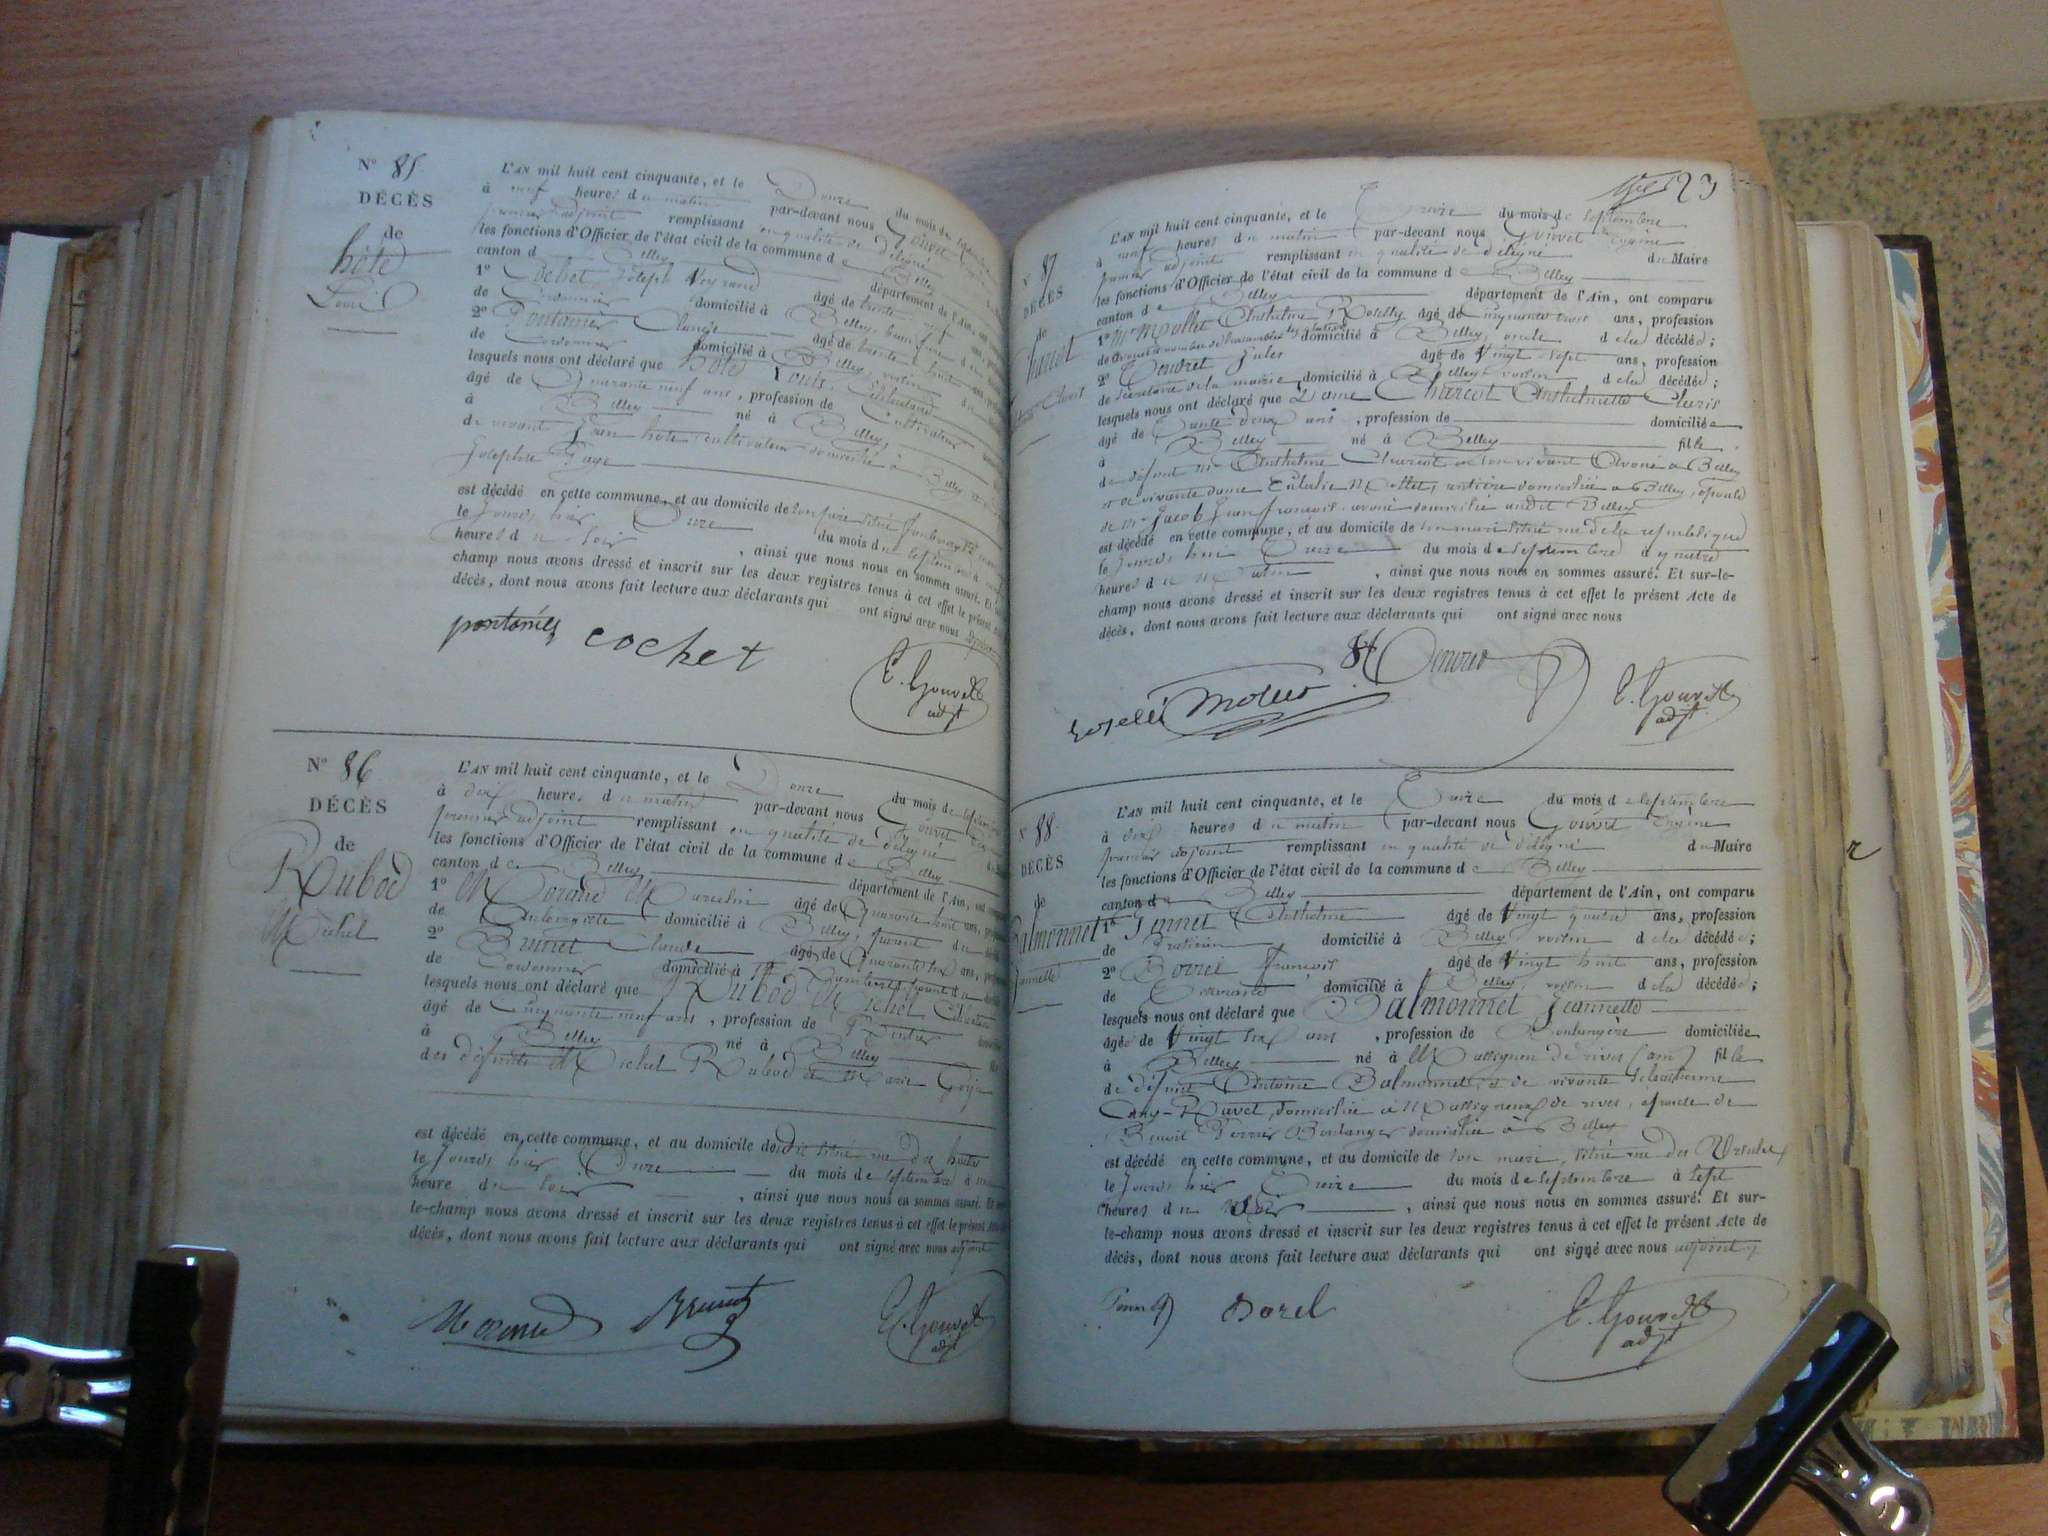 N° 85
DÉCÈS
de
hôte
Louis
L'AN mil huit cent cinquante, et le Douze du mois de septembre
à neuf heures du matin par-devant nous Gouvet
premier adjoint remplissant en qualité de délégué
les fonctions d'Officier de l'état civil de la commune de Belley
canton d Belley département de l'Ain, ont
1° Cochet Joseph âgé de trente neuf ans
de Cordonnier domicilié à Belley
2° Pontanier Claude âgé de trente huit ans
de Cordonnier domicilié à Belley, voisin
lesquels nous ont déclaré que hôte Louis, Célibataire
âgé de Quarante neuf ans, profession de Cultivateur
à Belley né à Belley,
de vivants Jean hôte, cultivateur domicilié à Belley et
Josephte
est décédé en cette commune, et au domicile de son père situé
le jour d'hier Onze du mois de septembre à
heures du soir, ainsi que nous nous en sommes assuré. Et
champ nous avons dressé et inscrit sur les deux registres tenus à cet effet le présent
décès, dont nous avons fait lecture aux déclarants qui ont signé avec nous adjoint
pontanier cochet
E. Gouvet
adjt
N° 86
DÉCÈS
de
Rubod
Michel
L'AN mil huit cent cinquante, et le Douze du mois de septembre
à dix heures du matin par-devant nous Gouvet
premier adjoint remplissant en qualité de délégué
les fonctions d'Officier de l'état civil de la commune de Belley
canton de Belley département de l'Ain, ont
1° Morand Marcelin âgé de Quarante huit ans,
de Aubergiste domicilié à Belley, parent du
2° Brunet Claude âgé de Quarante six ans,
de Cordonnier domicilié à
lesquels nous ont déclaré que Rubod Michel Célibataire
âgé de Cinquante neuf ans, profession de Rentier
à Belley né à Belley
des défunts Michel Rubod et Marie
est décédé en cette commune, et au domicile de situé rue du
le jour d'hier Onze du mois de septembre à une
heure du soir, ainsi que nous nous en sommes assuré. Et
le-champ nous avons dressé et inscrit sur les deux registres tenus à cet effet le présent Acte
décès, dont nous avons fait lecture aux déclarants qui ont signé avec nous adjoint
Morand Brunet
E. Gouvet
adjt
23
N° 87
DÉCÈS
de
L'AN mil huit cent cinquante, et le Treize du mois de septembre
à neuf heures du matin par-devant nous Gouvet Eugène
premier adjoint remplissant en qualité de délégué du Maire
les fonctions d'Officier de l'état civil de la commune de Belley
canton de Belley département de l'Ain, ont comparu
1° Mr Mollet Anthelme Roselly âgé de cinquante trois ans, profession
de domicilié à Belley, oncle de la décédée;
2° Jules âgé de Vingt sept ans, profession
de secrétaire de la mairie, domicilié à Belley, voisin de la décédée;
lesquels nous ont déclaré que Dame Charcot Anthelmette Claris
âgé de Trente deux ans, profession de domiciliée
à Belley né à Belley fille
de défunt Mr Anthelme Charcot en son vivant Avoué à Belley
et de vivante dame Eulalie Mollet, rentière domiciliée à Belley, épouse
de Mr Jacob Jean françois avoué domicilié audit Belley
est décédé en cette commune, et au domicile de son mari situé rue de la république
le jour d'hier Douze du mois de septembre à quatre
heures du Matin, ainsi que nous nous en sommes assuré. Et sur-le-
champ nous avons dressé et inscrit sur les deux registres tenus à cet effet le présent Acte de
décès, dont nous avons fait lecture aux déclarants qui ont signé avec nous
roselli Mollet
E. Gouvet
adjt
N° 88
DÉCÈS
de
Balmonnet
Jeannette
L'AN mil huit cent cinquante, et le Treize du mois de septembre
à dix heures du matin par-devant nous Gouvet Eugène
premier adjoint remplissant en qualité de délégué du Maire
les fonctions d'Officier de l'état civil de la commune de Belley
canton de Belley département de l'Ain, ont comparu
1° Anthelme âgé de Vingt quatre ans, profession
de Praticien domicilié à Belley, voisin de la décédée;
2° Borel françois âgé de Vingt huit ans, profession
de domicilié à Belley, voisin de la décédée;
lesquels nous ont déclaré que Balmonnet Jeannette
âgée de Vingt six ans, profession de Boulangère domiciliée
à Belley né à Massignieu de rives (ain) fille
de défunt Antoine Balmonnet, et de vivante
domiciliée à Massignieux de rives, épouse de
Benoit Perrier Boulanger domicilié à Belley
est décédé en cette commune, et au domicile de son mari, situé rue des Ursules
le jour d'hier Douze du mois de septembre à sept
heures du soir, ainsi que nous nous en sommes assuré. Et sur-
le-champ nous avons dressé et inscrit sur les deux registres tenus à cet effet le présent Acte de
décès, dont nous avons fait lecture aux déclarants qui ont signé avec nous adjoint
Borel
E. Gouvet
adjt